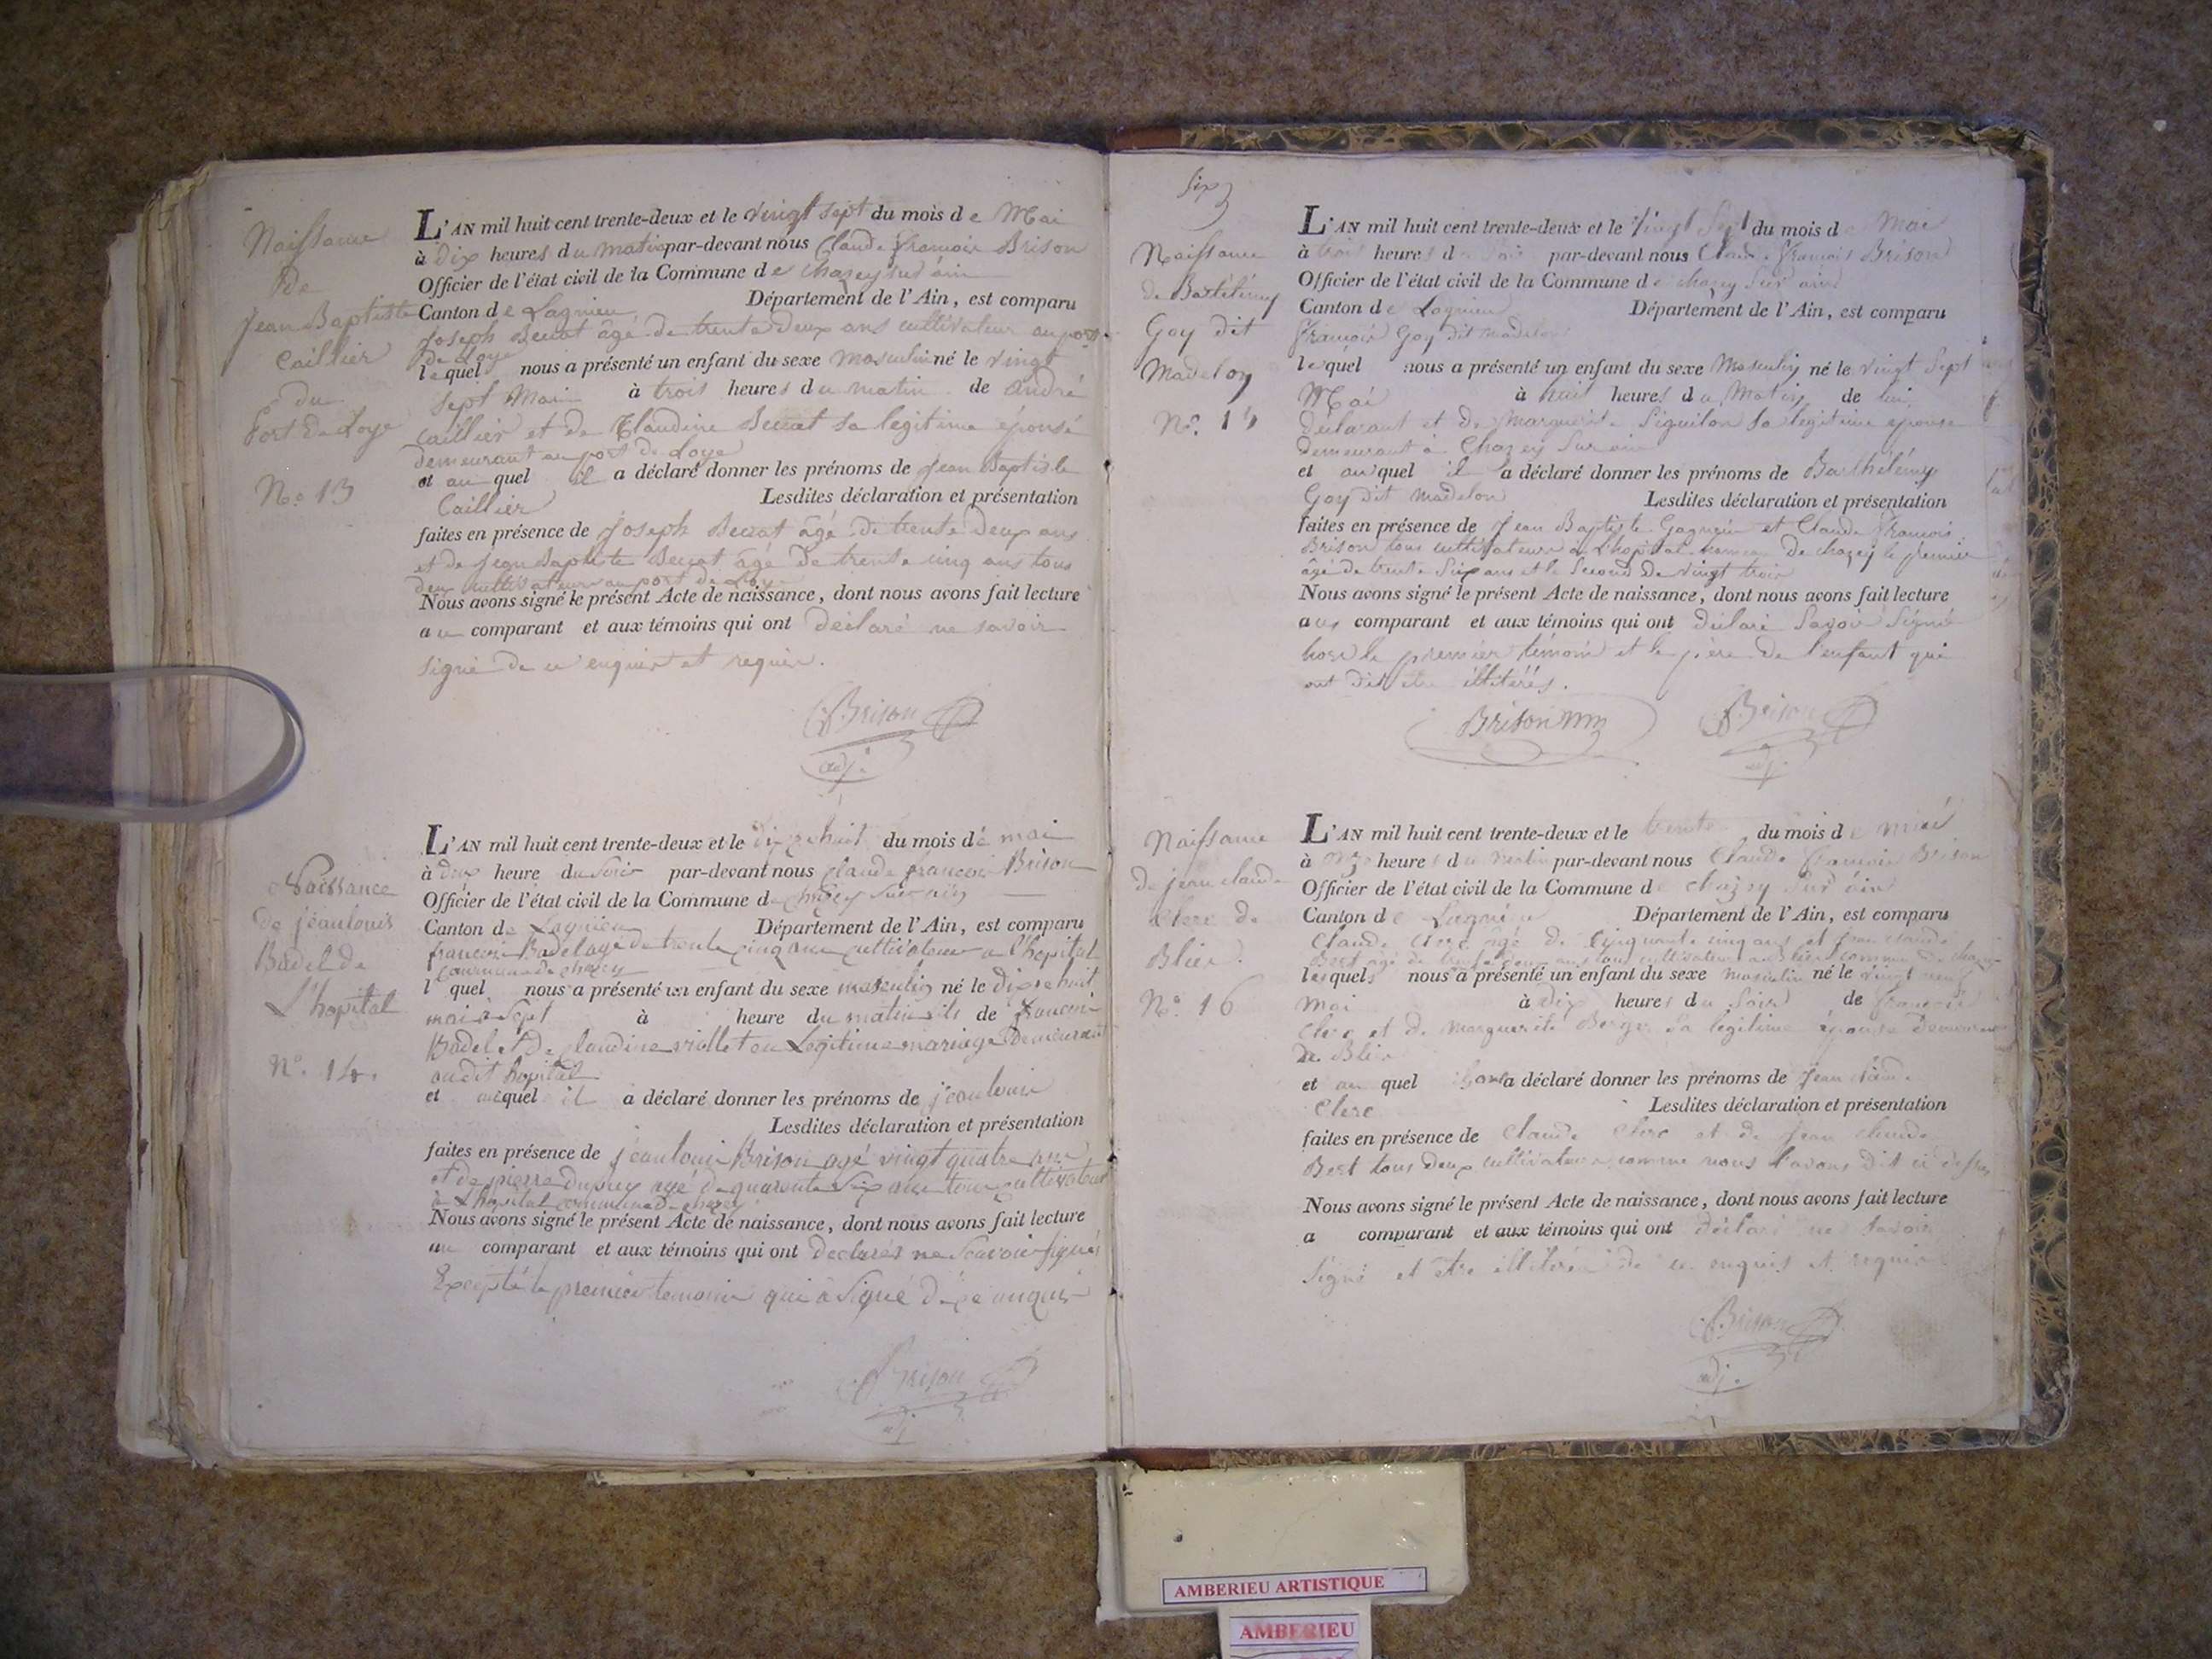 Naissance
de
Jean Baptiste
Caillier
du
Port de Loye
No. 13
L'AN mil huit cent trente-deux et le vingt sept du mois de Mai
à dix heures du matin par-devant nous Claude françois Brison
Officier de l'état civil de la Commune de chazey sur ain
Canton de Lagnieu Département de l'Ain, est comparu
Joseph âgé de trente deux ans cultivateur au port
de Loye
lequel nous a présenté un enfant du sexe masculin né le vingt
sept Mai à trois heures du matin de André
Caillier et de Claudine sa legitime épouse
demeurant au port de Loye
et au quel il a déclaré donner les prénoms de Jean Baptiste
Caillier Lesdites déclaration et présentation
faites en présence de Joseph âgé de trente deux ans
et de Jean Baptiste âgé de trente cinq ans tous
deux cultivateurs au port de Loye
Nous avons signé le présent Acte de naissance, dont nous avons fait lecture
au comparant et aux témoins qui ont déclaré ne savoir
signé de ce enquis et requis.
Brison
adj.
Naissance
de jeanlouis
Badel de
L'hopital
No. 14.
L'AN mil huit cent trente-deux et le dix e huit du mois de mai
à deux heure du soir par-devant nous claude françois Brison
Officier de l'état civil de la Commune de chazey sur ain
Canton de Lagnieu Département de l'Ain, est comparu
françois Badel age de trente cinq ans cultivateur a l'hopital
commune de chazey
l quel nous a présenté un enfant du sexe masculin né le dix e huit
mai à sept à heure du matin fils de françois
Badel et de claudine viollet en Legitime mariage demeurant
audit hopital
et auquel il a déclaré donner les prénoms de jeanlouis
Lesdites déclaration et présentation
faites en présence de jeanlouis Brison agé vingt quatre ans
et de pierre dupuy agé de quarente six ans tous cultivateur
à L'hopital commune de chazey
Nous avons signé le présent Acte de naissance, dont nous avons fait lecture
au comparant et aux témoins qui ont declarés ne Scavoir signés
Excepté le premier temoin qui à Signé
Brison
Six
Naissance
de Bartélémy
Goy dit
Madelon
No. 15
L'AN mil huit cent trente-deux et le Vingt Sept du mois de Mai
à trois heures du soir par-devant nous Claude François Brison
Officier de l'état civil de la Commune de chazey Sur ain
Canton de Lagnieu Département de l'Ain, est comparu
François Goy dit madelon
lequel nous a présenté un enfant du sexe Masculin né le vingt Sept
Mai à huit heures du Matin de lui
déclarant et de Marguerite Siguilon sa legitime épouse
demeurant à Chazey Sur ain
et auquel il a déclaré donner les prénoms de Barthélémy
Goy dit Madelon Lesdites déclaration et présentation
faites en présence de Jean Baptiste Gagneux et Claude François
Brison tous cultivateurs à L'hopital hameau De chazey le premier
âgé de trente Six ans et le Second de vingt trois
Nous avons signé le présent Acte de naissance, dont nous avons fait lecture
aux comparant et aux témoins qui ont déclaré Savoir Signé
hors le premier témoin et le père de l'enfant qui
ont dit être illitérés.
Brison
Brison
adj.
Naissance
de jean claude
Clerc de
Blier.
No. 16
L'AN mil huit cent trente-deux et le trente du mois de mai
à onze heures du matin par-devant nous Claude françois Brison
Officier de l'état civil de la Commune de chazey Sur ain
Canton de Lagnieu Département de l'Ain, est comparu
Claude Clerc âgé de Cinquante cinq ans et jean claude
Best âgé de trente deux ans tous cultivateurs au Blier commune de chazey
lesquels nous a présenté un enfant du sexe masculin né le vingt neuf
Mai à dix heures du Soir de françois
Clerc et de Marguerite Berger sa légitime épouse Demeurant
de Blier
et au quel ils ont a déclaré donner les prénoms de Jean claude
Clerc Lesdites déclaration et présentation
faites en présence de Claude Clerc et de Jean claude
Best tous deux cultivateurs comme nous l'avons dit ci dessus
Nous avons signé le présent Acte de naissance, dont nous avons fait lecture
a comparant et aux témoins qui ont déclaré ne Savoir
Signé et être illitérés de ce enquis et requis
Brison
adj.
AMBERIEU ARTISTIQUE
AMBERIEU